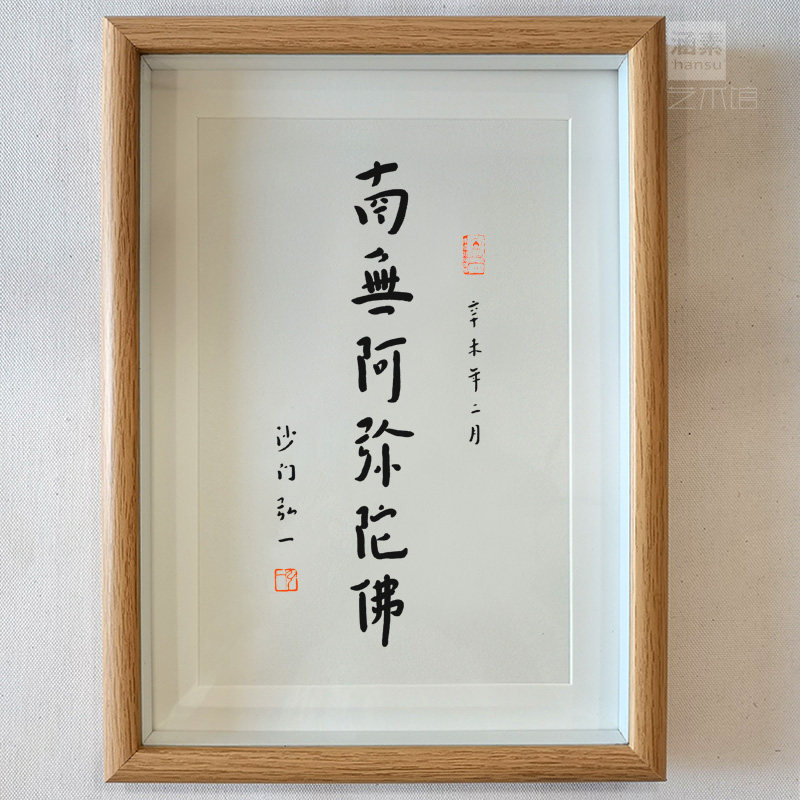 辛未年二月
南無阿弥陀佛
沙门弘一
涵素
hansu
艺术馆